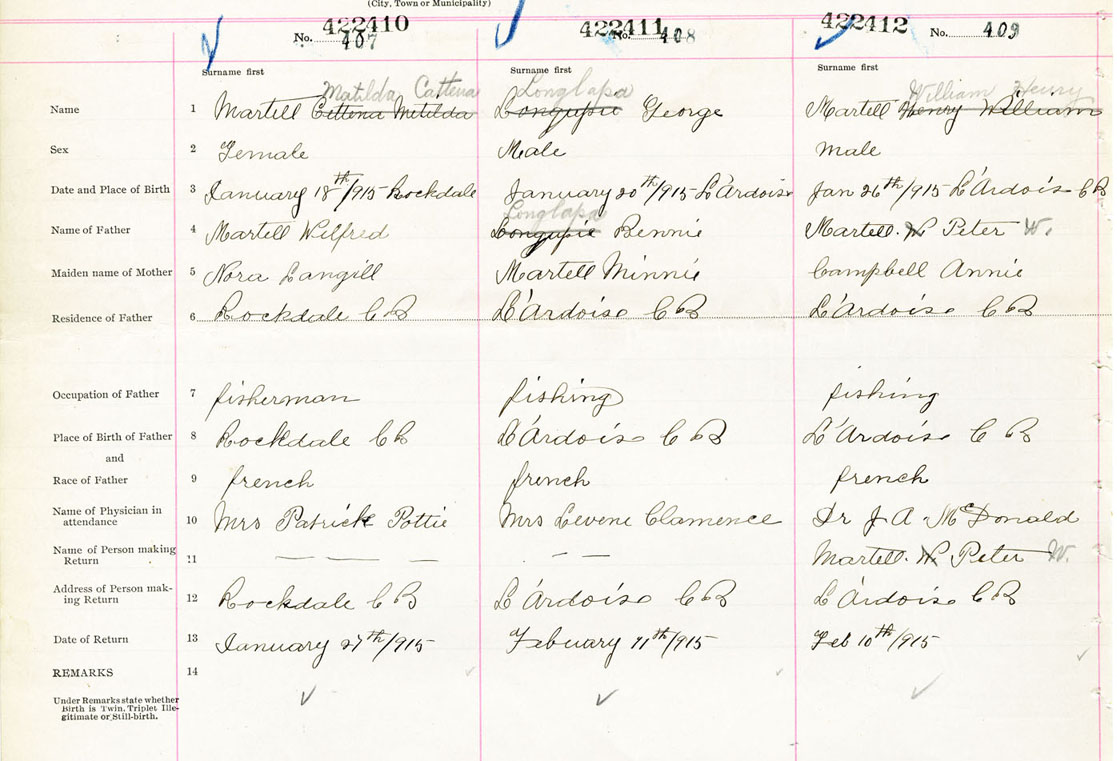 (City, Town or Municipality)
422410 422411 422412
No. 407 No. 408 No. 409
Surname first Surname first Surname first
Matilda Cattena Longlapa William Henry
Name 1 Martell Cettena Matilda Longupie George Martell Henry William
Sex 2 Female Male male
Date and Place of Birth 3 January 18th/915 Rockdale January 20th/915 L'Ardoise Jan 26th/915 L'Ardois CB
Longlapa
Name of Father 4 Martell Wilfred Longupie Bennie Martell W Peter W.
Maiden name of Mother 5 Nora Langill Martell Minnie Campbell Annie
Residence of Father 6 Rockdale CB L'Ardoise CB L'Ardoise CB
Occupation of Father 7 fisherman fishing fishing
Place of Birth of Father 8 Rockdale CB L'Ardoise CB L'Ardoise CB
and
Race of Father 9 french french french
Name of Physician in
attendance 10 Mrs Patrick Pottie Mrs Levene Clamence Dr J A McDonald
Name of Person making
Return 11 — — — — — Martell W Peter W.
Address of Person mak-
ing Return 12 Rockdale CB L'Ardoise CB L'Ardoise CB
Date of Return 13 January 27th/915 Febuary 11th/915 Feb 10th/915
REMARKS 14
Under Remarks state whether
Birth is Twin, Triplet Ille-
gitimate or Still-birth.